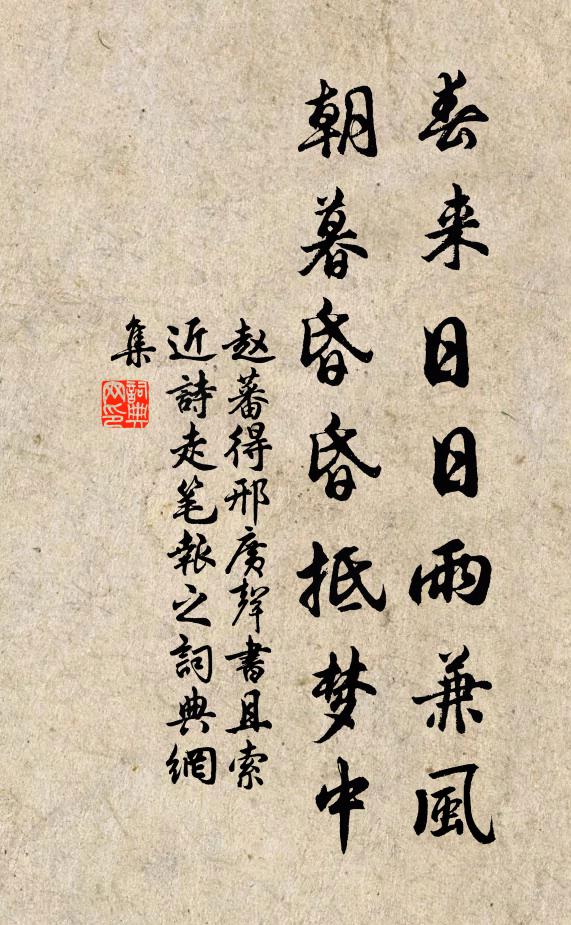 春来日日雨兼風
朝暮昏昏抵梦中
赵蕃得邢廣聲書且索
近詩走笔報之詞典網
集
詞典网印